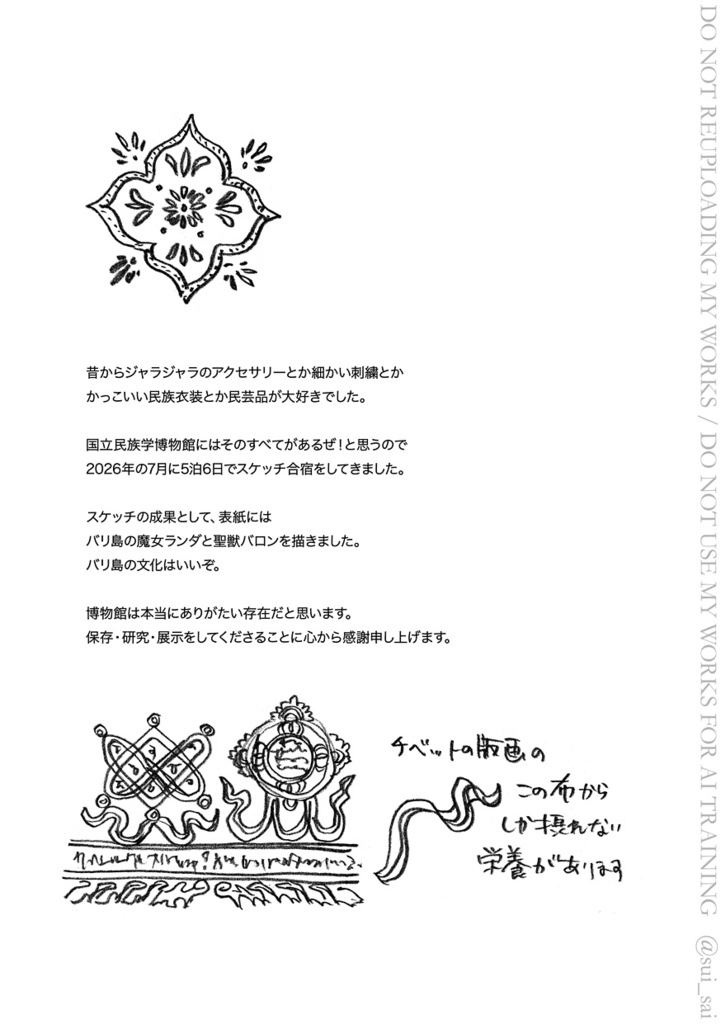 昔からジャラジャラのアクセサリーとか細かい刺繍とか
かっこいい民族衣装とか民芸品が大好きでした。
国立民族学博物館にはそのすべてがあるぜ!と思うので
2026年の7月に5泊6日でスケッチ合宿をしてきました。
スケッチの成果として、表紙には
バリ島の魔女ランダと聖獣バロンを描きました。
バリ島の文化はいいぞ。
博物館は本当にありがたい存在だと思います。
保存・研究・展示をしてくださることに心から感謝申し上げます。
チベットの版画の
この布から
しか摂れない
栄養があります
DO NOT REUPLOADING MY WORKS / DO NOT USE MY WORKS FOR AI TRAINING @sui_sai